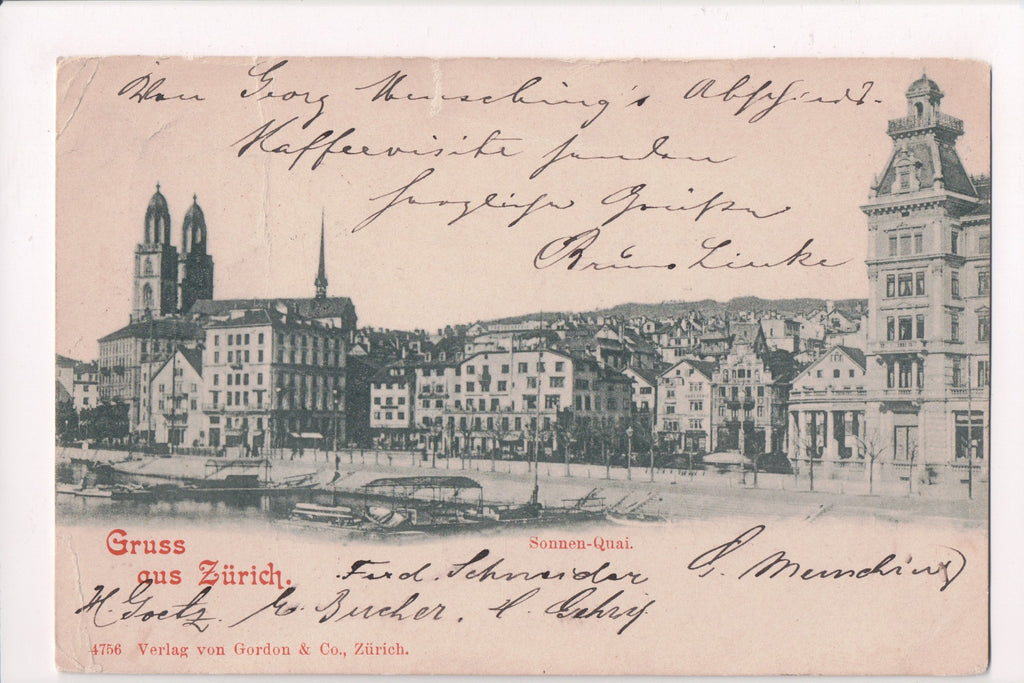 Von Georg Mensching's Abschieds-
Kaffeevisite senden
herzliche Grüße
Bruno Lincke
Gruss
aus Zürich.
Sonnen-Quai.
Ferd. Schneider
G. Mensching
H. Goetz. M. Bucher. H. Gehrig
4756 Verlag von Gordon & Co., Zürich.